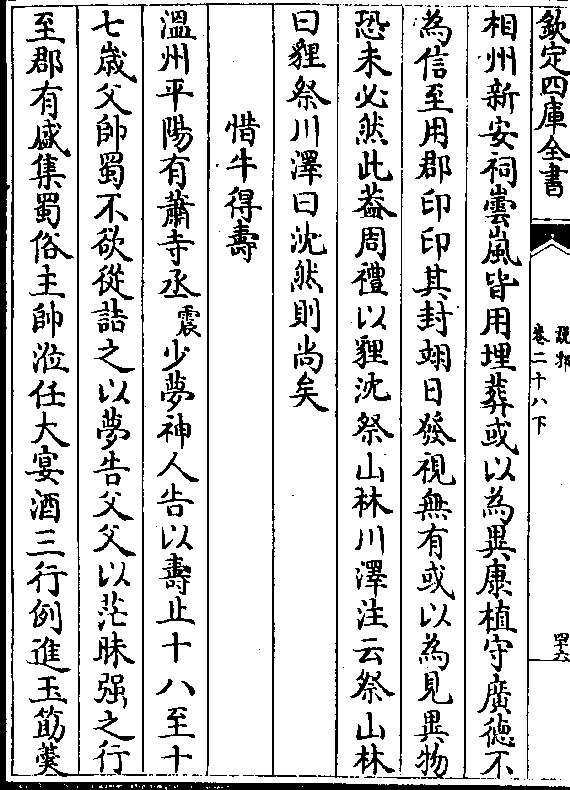 欽定四庫全書
說郛
卷二十八下
四十六
相州新安祠雲嵐皆用埋葬或以為異康植守廣德不
為信至用郡印印其封翊日發視無有或以為見異物
恐未必然此蓋周禮以貍沈祭山林川澤注云祭山林
曰貍祭川澤曰沈然則尚矣
惜牛得壽
溫州平陽有蕭寺丞震少夢神人告以壽止十八至十
七歲父帥蜀不欲從詰之以夢告父父以茫昧强之行
至郡有盛集蜀俗主帥涖任大宴酒三行例進玉筯羹